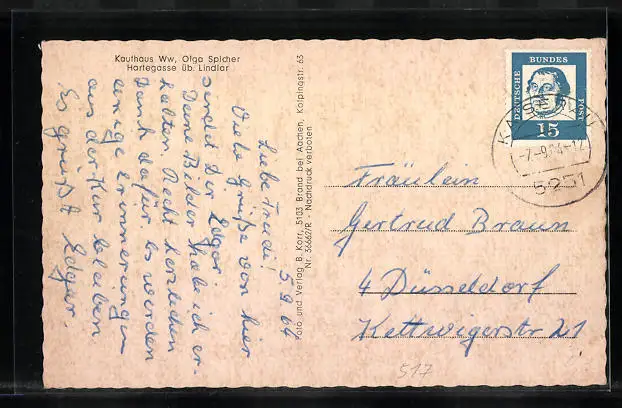 Kaufhaus Ww. Olga Spicher
Hartegasse üb. Lindlar
5.9.64
Liebe Trudi!
Viele Grüße von hier
sendet Dir Edgar.
Deine Bilder habe ich er-
halten. Recht herzlichen
Dank dafür. Es werden
einige Erinnerungen
aus der Kur bleiben
Es grüßt Edgar.
Foto und Verlag B. Korr, 5103 Brand bei Aachen, Kolpingstr. 63
Nr. 36662/R - Nachdruck verboten
DEUTSCHE
BUNDES
POST
15
-7.-9.64-12
5251
Fräulein
Gertrud Braun
4 Düsseldorf
Kettwigerstr 21
517